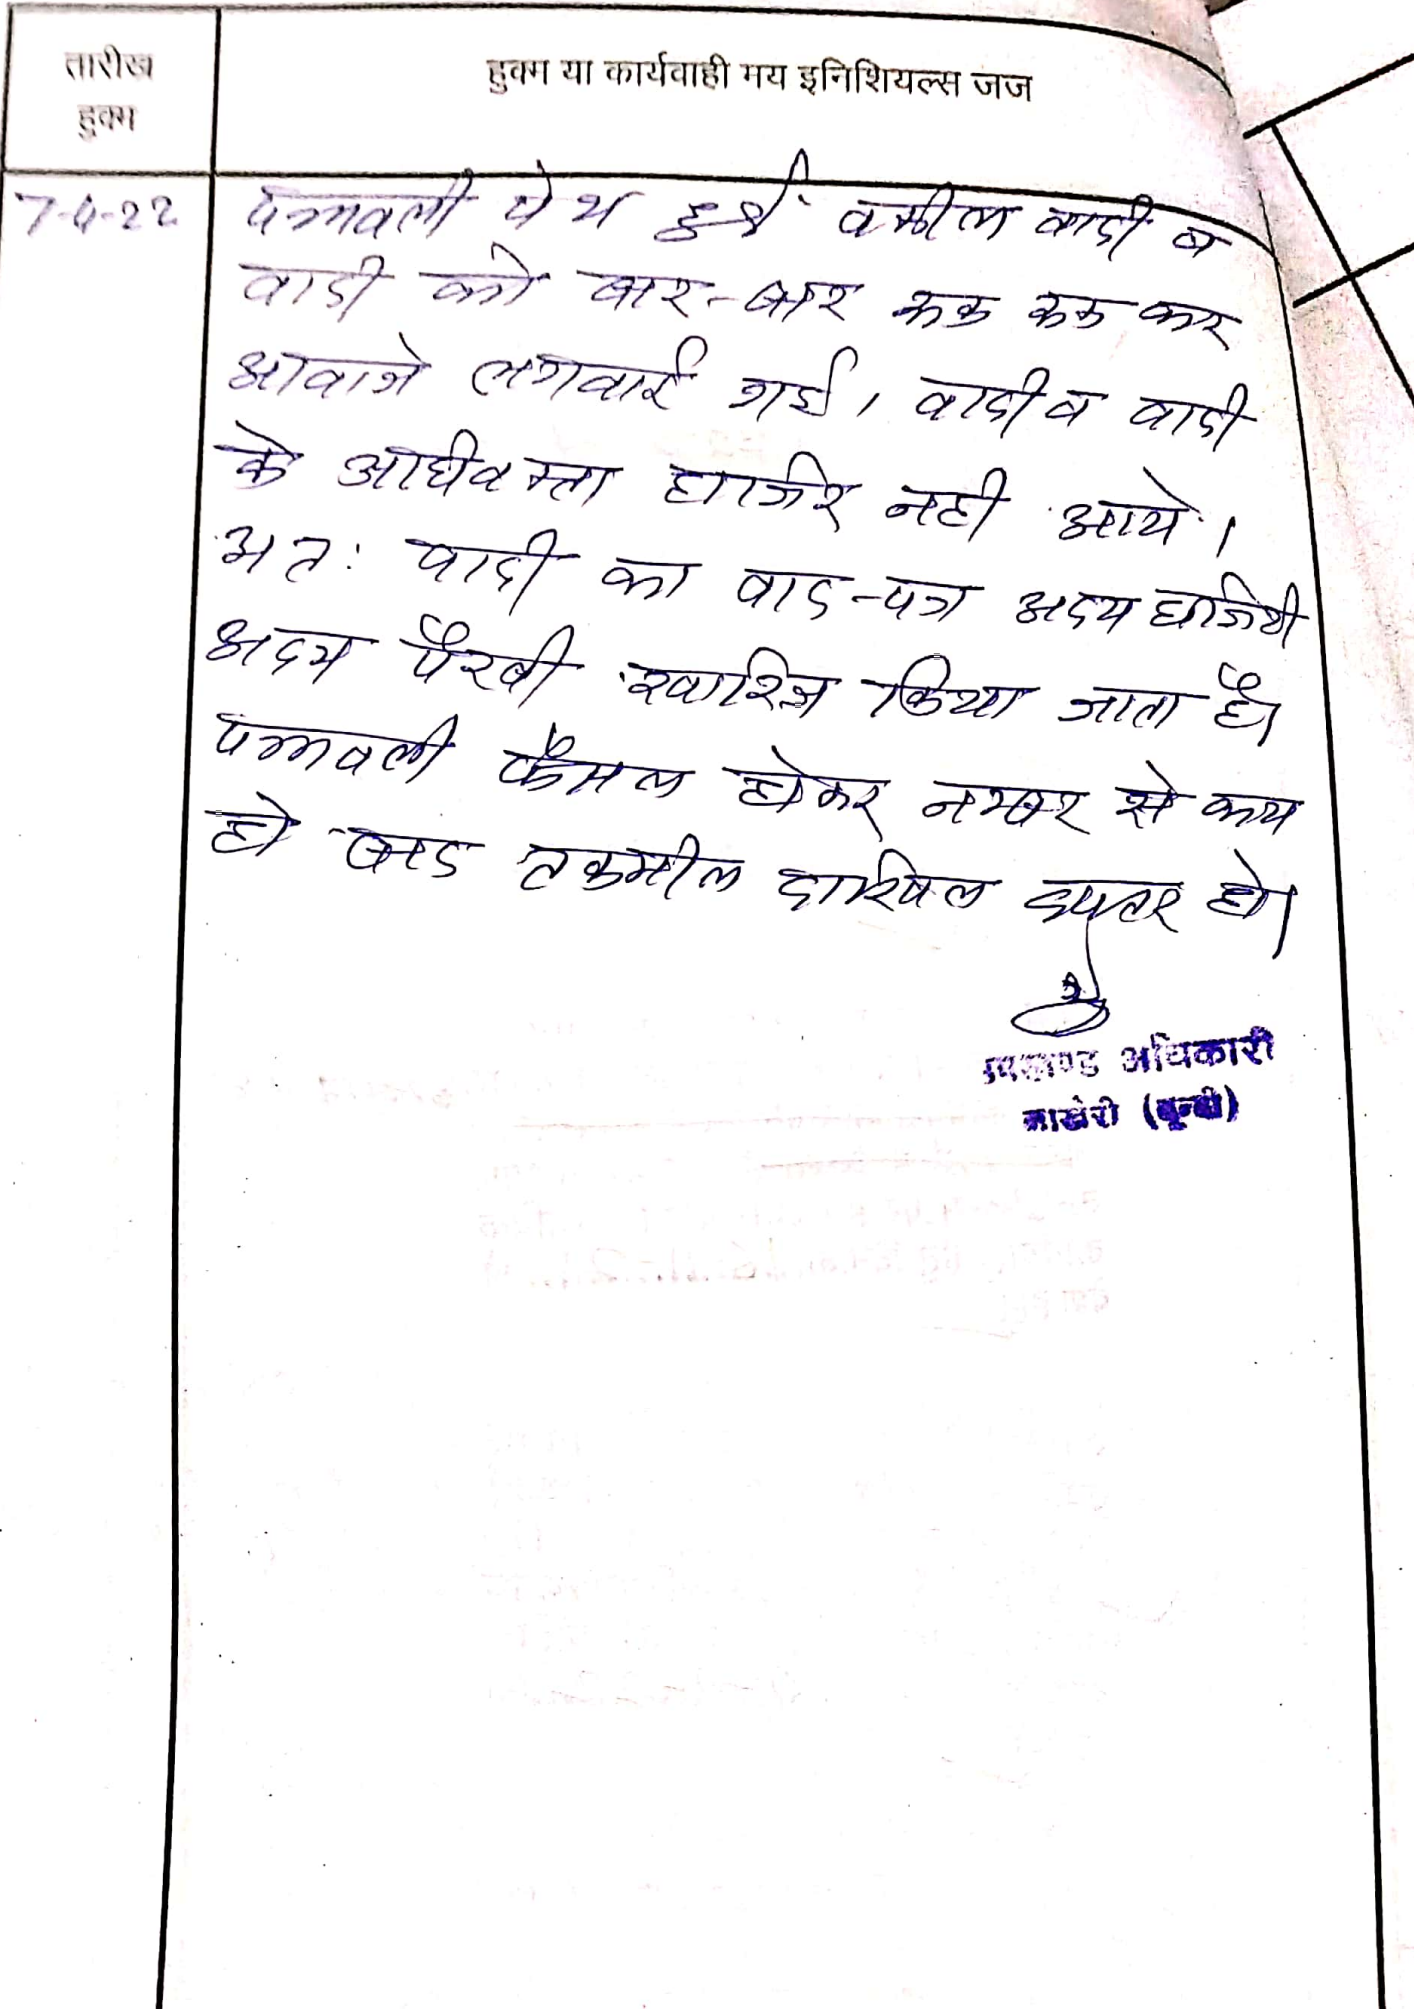 तारीख
हुक्म
हुक्म या कार्यवाही मय इनिशियल्स जज
7-4-22
पत्रावली पेश हुई वकील वादी व
वादी को बार-बार रूक रूक कर
आवाजे लगवाई गई, वादी व वादी
के अधिवक्ता हाजिर नही आये।
अतः वादी का वाद-पत्र अदम हाजिरी
अदम पैरवी खारिज किया जाता है।
पत्रावली फैसल होकर नम्बर से कम
हो बाद तकमील दाखिल दफ्तर हो।
उपखण्ड अधिकारी
लाखेरी (बून्दी)